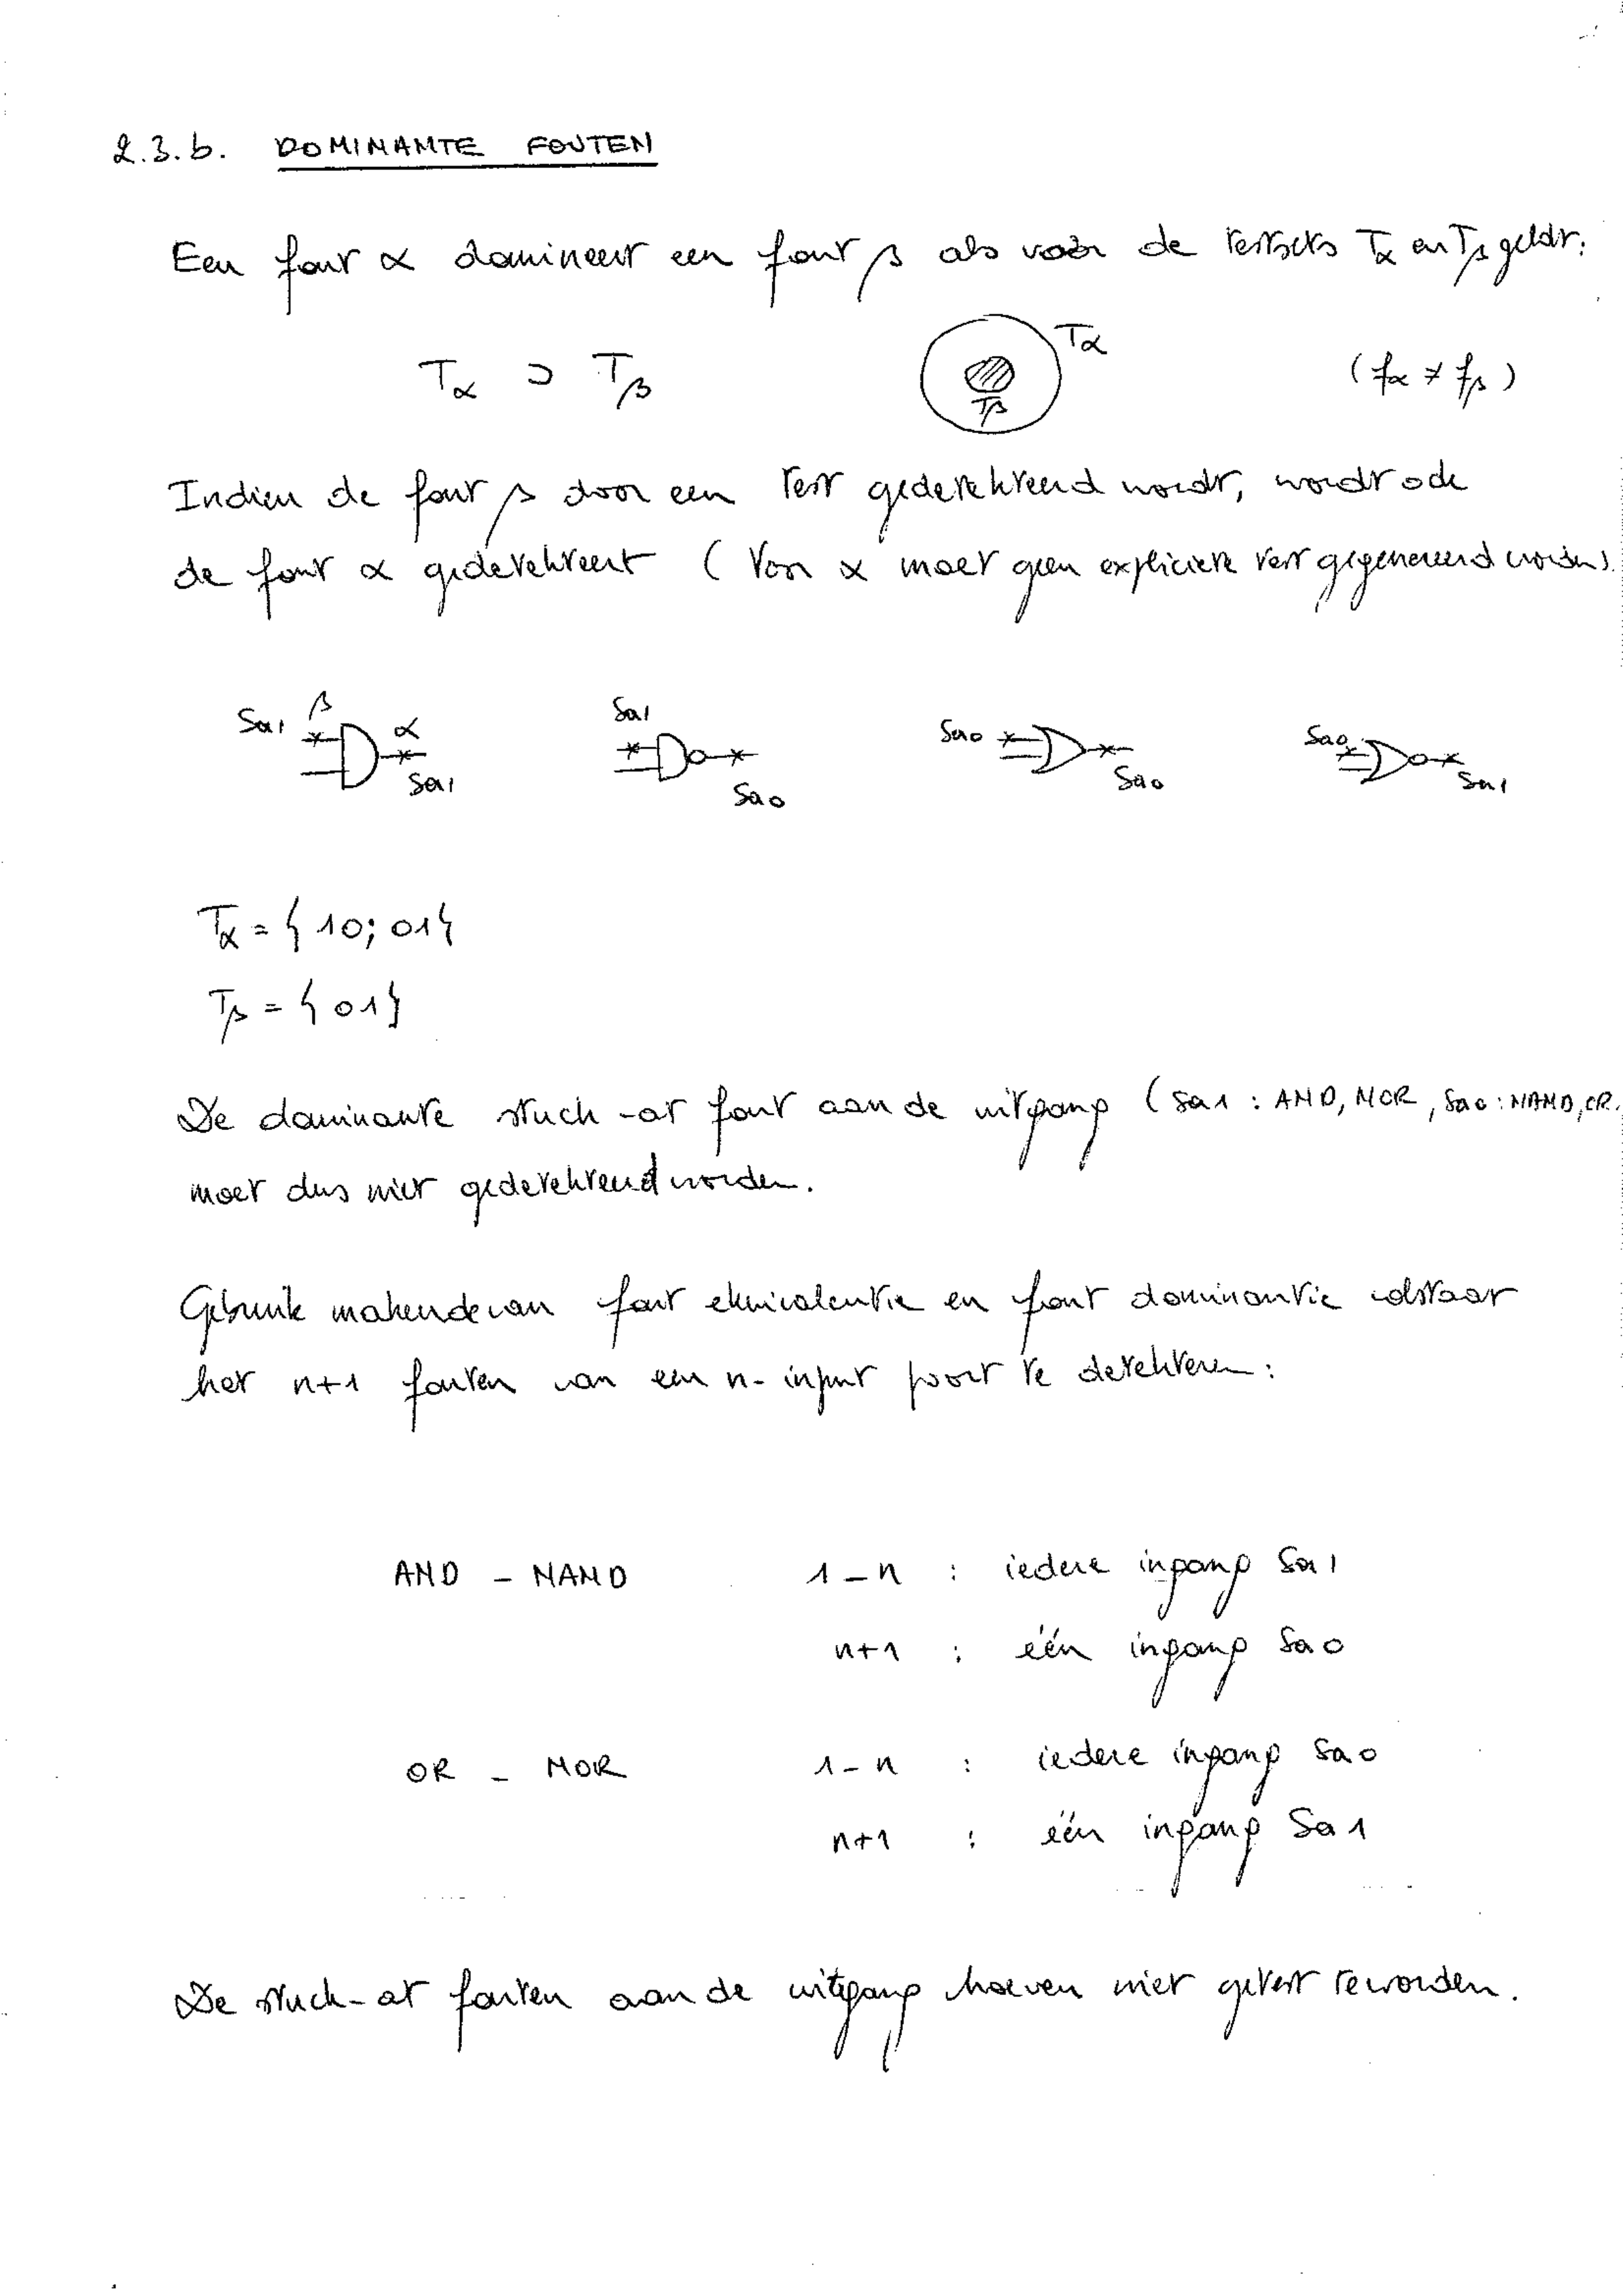 2.3.b. DOMINANTE FOUTEN
Een fout α domineert een fout β als voor de testsets Tα en Tβ geldt:
Tα ⊃ Tβ
Tα
Tβ
(fα ≠ fβ)
Indien de fout β door een test gedetekteerd wordt, wordt ook
de fout α gedetekteert (Voor α moet geen expliciete test gegenereerd worden).
Sa1 β α Sa1
Sa1 Sa0
Sa0 Sa0
Sa0 Sa1
Tα = { 10; 01}
Tβ = { 01}
De dominante stuck-at fout aan de uitgang (Sa1 : AND, NOR, Sa0 : NAND, OR.
moet dus niet gedetekteerd worden.
Gebruik makende van fout ekwivalentie en fout dominantie volstaat
het n+1 fouten van een n-input poort te detekteren :
AND – NAND 1 – n : iedere ingang Sa1
n+1 : één ingang Sa0
OR – NOR 1 – n : iedere ingang Sa0
n+1 : één ingang Sa1
De stuck-at fouten aan de uitgang hoeven niet getest te worden.